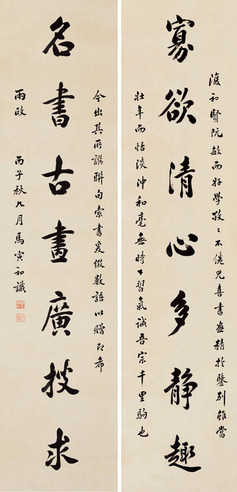 寡欲清心多静趣
復初賢阮敏而好學孜々不倦尤喜書畫精於鑒別雖當
壯年而恬淡沖和毫無時下習氣誠吾宗千里駒也
名書古畫廣搜求
今出其所譔聯句索書爰假數語以贈即希
兩政 丙子秋九月馬寅初識